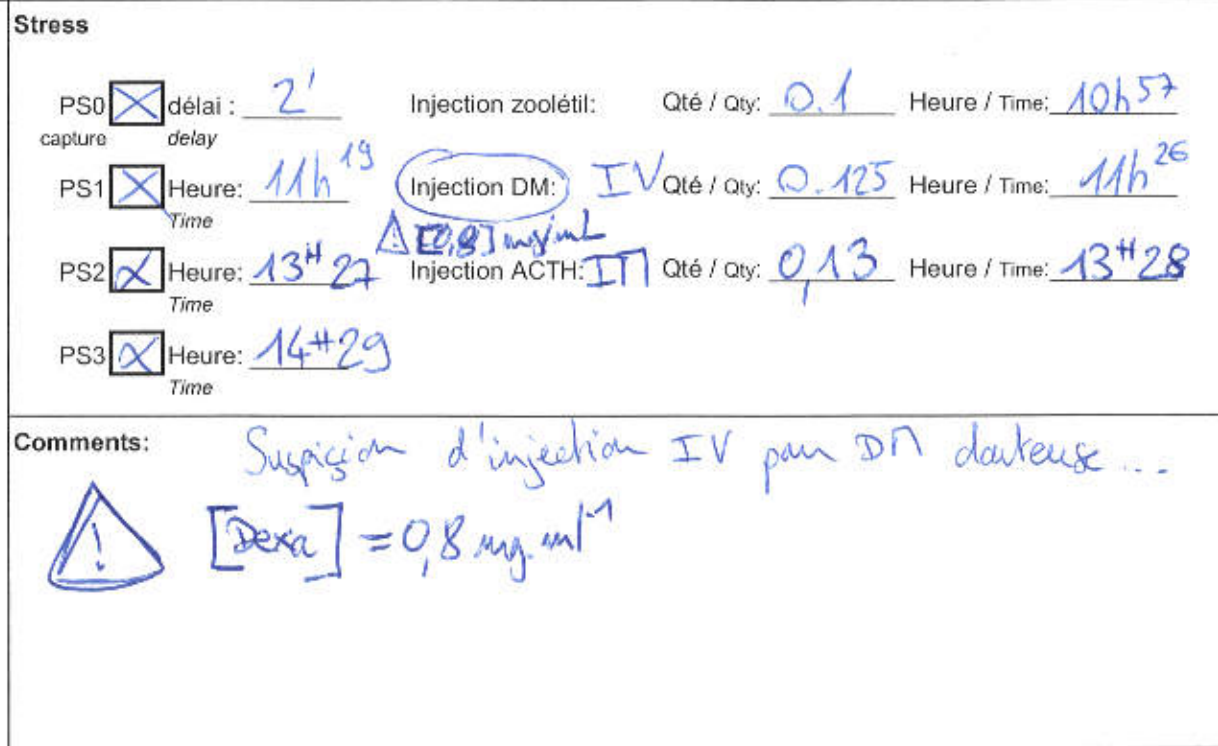 Stress
PS0 délai : 2' Injection zoolétil: Qté / Qty: 0.1 Heure / Time: 10h57
capture delay
PS1 Heure: 11h19 Injection DM: IV Qté / Qty: 0.125 Heure / Time: 11h26
Time
⚠ [0,8] mg/mL
PS2 Heure: 13H27 Injection ACTH: IM Qté / Qty: 0,13 Heure / Time: 13H28
Time
PS3 Heure: 14H29
Time
Comments: Suspicion d'injection IV pour DM douteuse...
⚠ [Dexa] = 0,8 mg.ml⁻¹